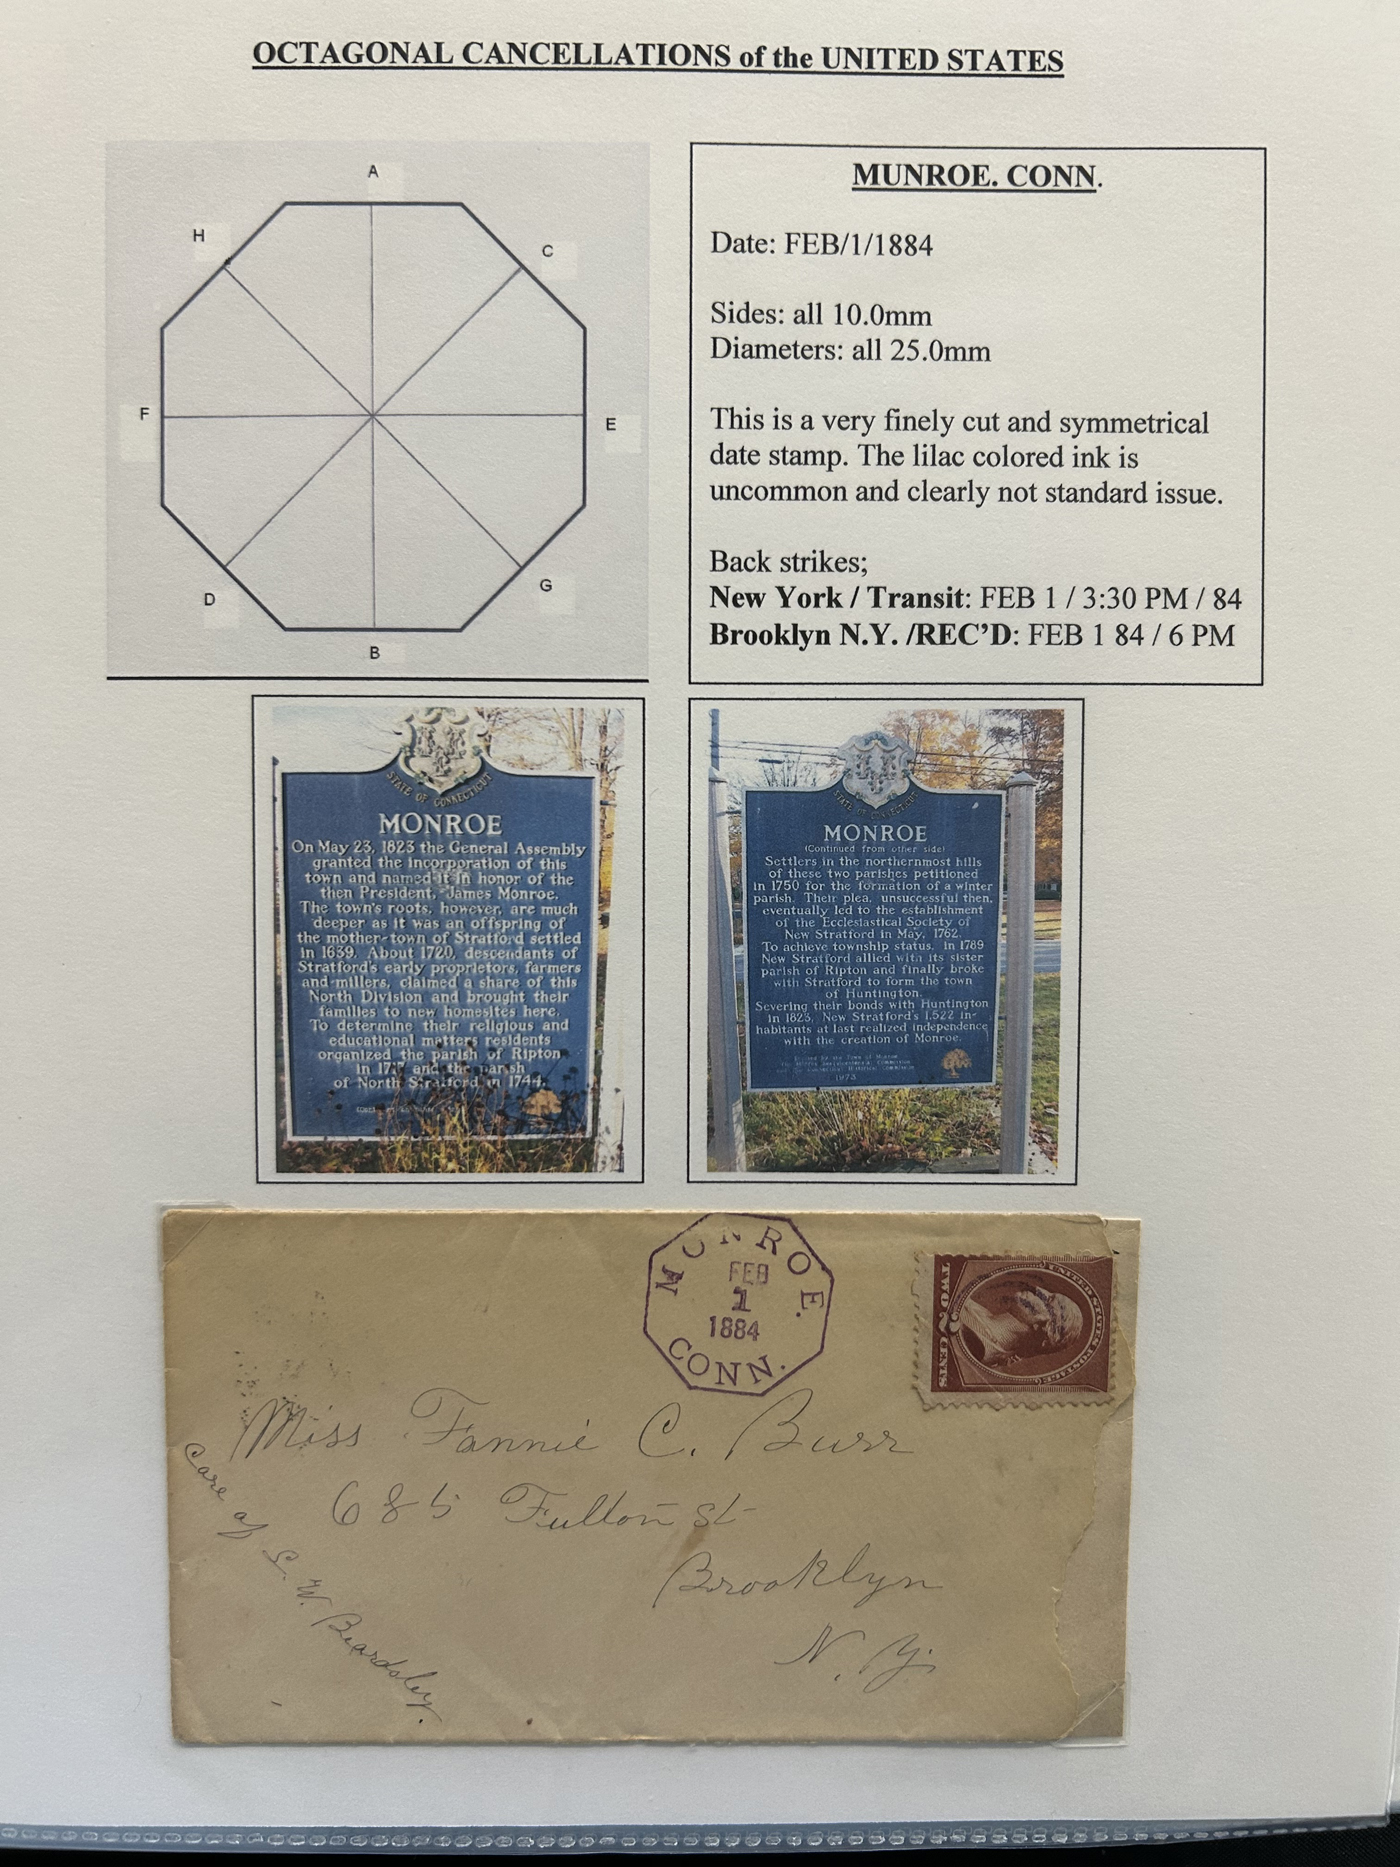 OCTAGONAL CANCELLATIONS of the UNITED STATES
A
H
C
F
E
D
G
B
MUNROE. CONN.
Date: FEB/1/1884
Sides: all 10.0mm
Diameters: all 25.0mm
This is a very finely cut and symmetrical
date stamp. The lilac colored ink is
uncommon and clearly not standard issue.
Back strikes;
New York / Transit: FEB 1 / 3:30 PM / 84
Brooklyn N.Y. /REC’D: FEB 1 84 / 6 PM
STATE OF CONNECTICUT
MONROE
On May 23, 1823 the General Assembly
granted the incorporation of this
town and named it in honor of the
then President, James Monroe.
The town's roots, however, are much
deeper as it was an offspring of
the mother-town of Stratford settled
in 1639. About 1720, descendants of
Stratford's early proprietors, farmers
and millers, claimed a share of this
North Division and brought their
families to new homesites here.
To determine their religious and
educational matters residents
organized the parish of Ripton
in and the parish
of North Stratford in 1744.
STATE OF CONNECTICUT
MONROE
(Continued from other side)
Settlers in the northernmost hills
of these two parishes petitioned
in 1750 for the formation of a winter
parish. Their plea, unsuccessful then,
eventually led to the establishment
of the Ecclesiastical Society of
New Stratford in May, 1762.
To achieve township status, in 1789
New Stratford allied with its sister
parish of Ripton and finally broke
with Stratford to form the town
of Huntington.
Severing their bonds with Huntington
in 1823, New Stratford's 1,522 in-
habitants at last realized independence
with the creation of Monroe.
Erected by the Town of Monroe
1973
MONROE.
FEB
1
1884
CONN.
UNITED STATES POSTAGE
TWO 2 CENTS
Miss Fannie C. Burr
685 Fulton St
Brooklyn
N. Y.
Care of S. W. Beardsley.